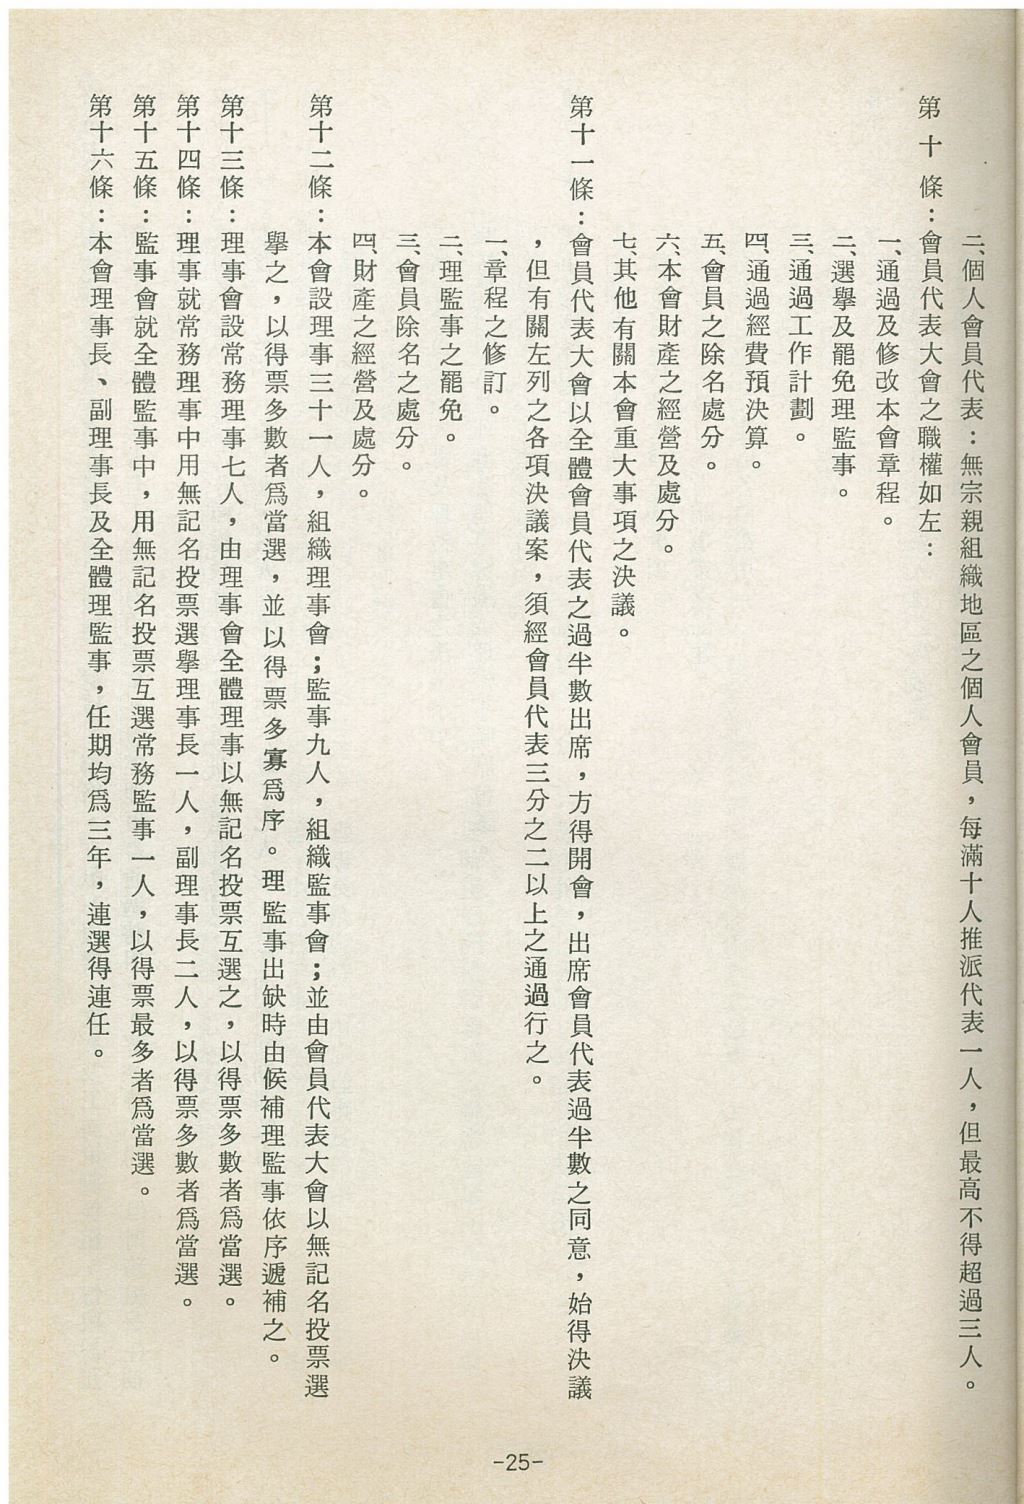 二、個人會員代表：無宗親組織地區之個人會員，每滿十人推派代表一人，但最高不得超過三人。
第十條：會員代表大會之職權如左：
一、通過及修改本會章程。
二、選擧及罷免理監事。
三、通過工作計劃。
四、通過經費預決算。
五、會員之除名處分。
六、本會財產之經營及處分。
七、其他有關本會重大事項之決議。
第十一條：會員代表大會以全體會員代表之過半數出席，方得開會，出席會員代表過半數之同意，始得決議
，但有關左列之各項決議案，須經會員代表三分之二以上之通過行之。
一、章程之修訂。
二、理監事之罷免。
三、會員除名之處分。
四、財產之經營及處分。
第十二條：本會設理事三十一人，組織理事會；監事九人，組織監事會；並由會員代表大會以無記名投票選
擧之，以得票多數者爲當選，並以得票多寡爲序。理監事出缺時由候補理監事依序遞補之。
第十三條：理事會設常務理事七人，由理事會全體理事以無記名投票互選之，以得票多數者爲當選。
第十四條：理事就常務理事中用無記名投票選擧理事長一人，副理事長二人，以得票多數者爲當選。
第十五條：監事會就全體監事中，用無記名投票互選常務監事一人，以得票最多者爲當選。
第十六條：本會理事長、副理事長及全體理監事，任期均爲三年，連選得連任。
-25-